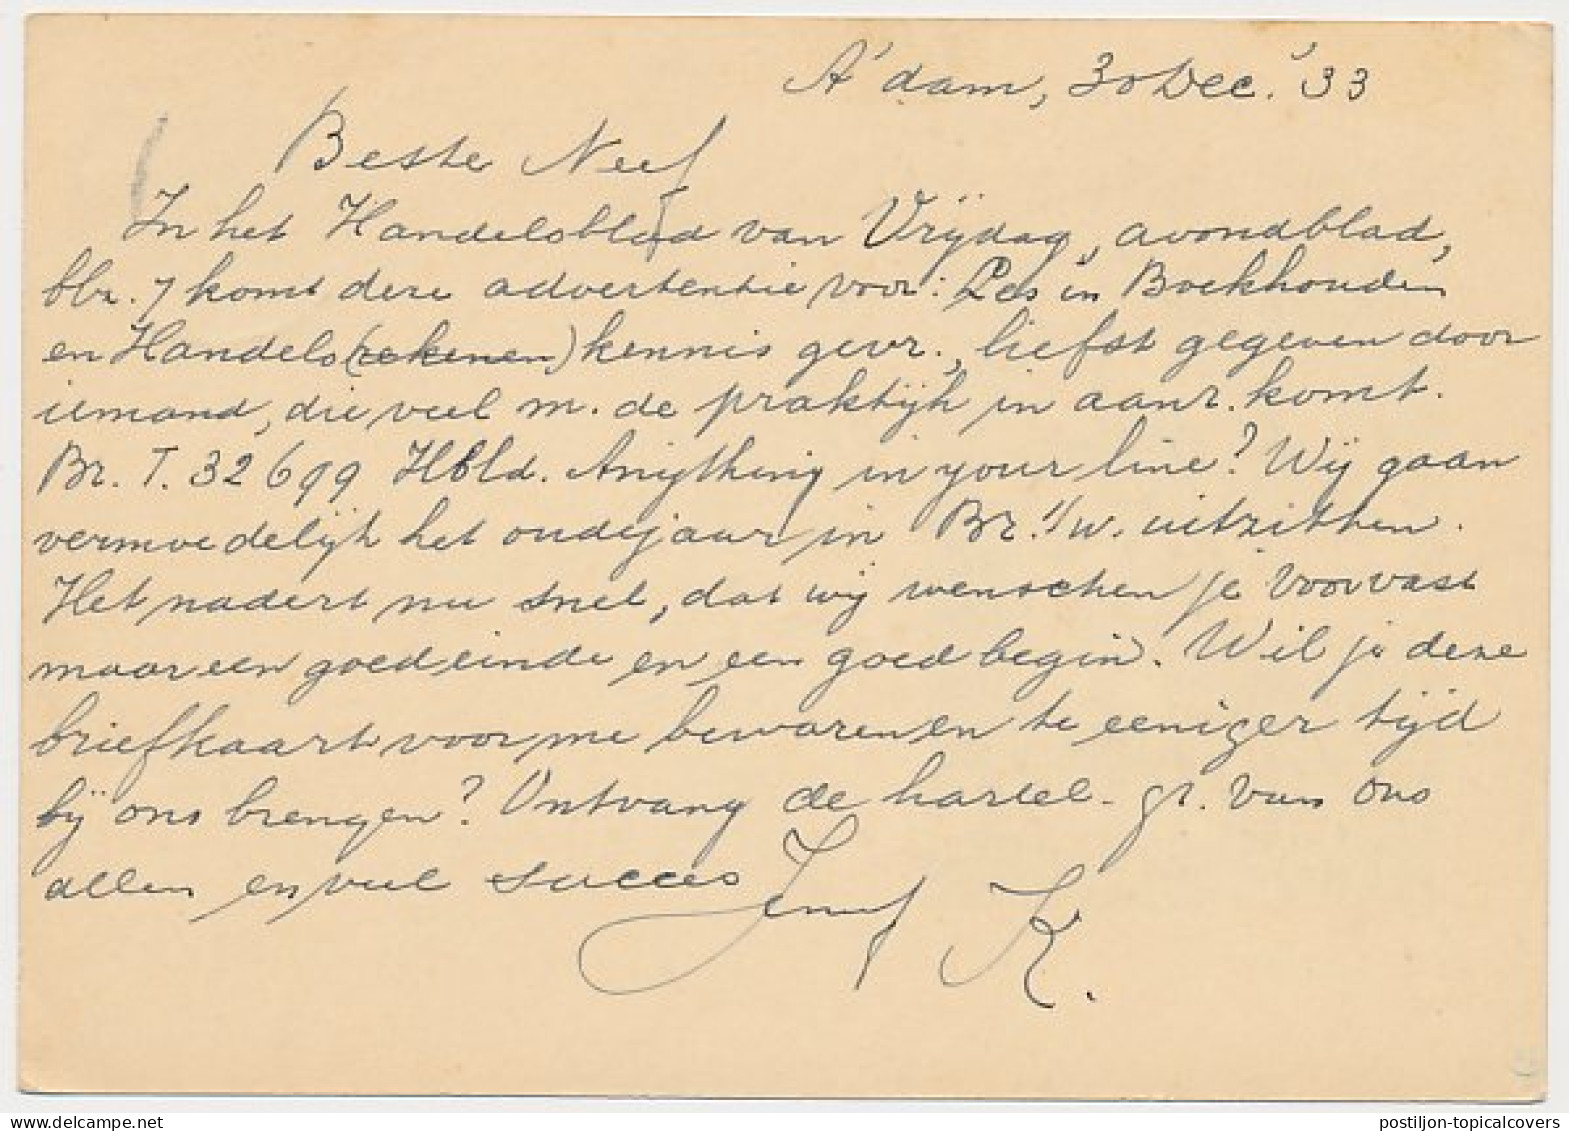 A'dam, 30 Dec. '33
Beste Neef
In het Handelsblad van Vrijdag, avondblad,
blz. 7 komt deze advertentie voor: Les in Boekhouden
en Handels(rekenen) kennis gevr., liefst gegeven door
iemand, die veel m. de praktijk in aanr. komt.
Br. T. 32699 Hbld. Anything in your line? Wij gaan
vermoedelijk het oudejaar in Br. '/w. uitzitten.
Het nadert nu snel, dat wij wenschen je voorvast
maar een goed einde en een goed begin. Wil je deze
briefkaart voor me bewaren en te eeniger tijd
bij ons brengen? Ontvang de hartel. gr. van ons
allen en veel succes
K.
postiljon-topicalcovers